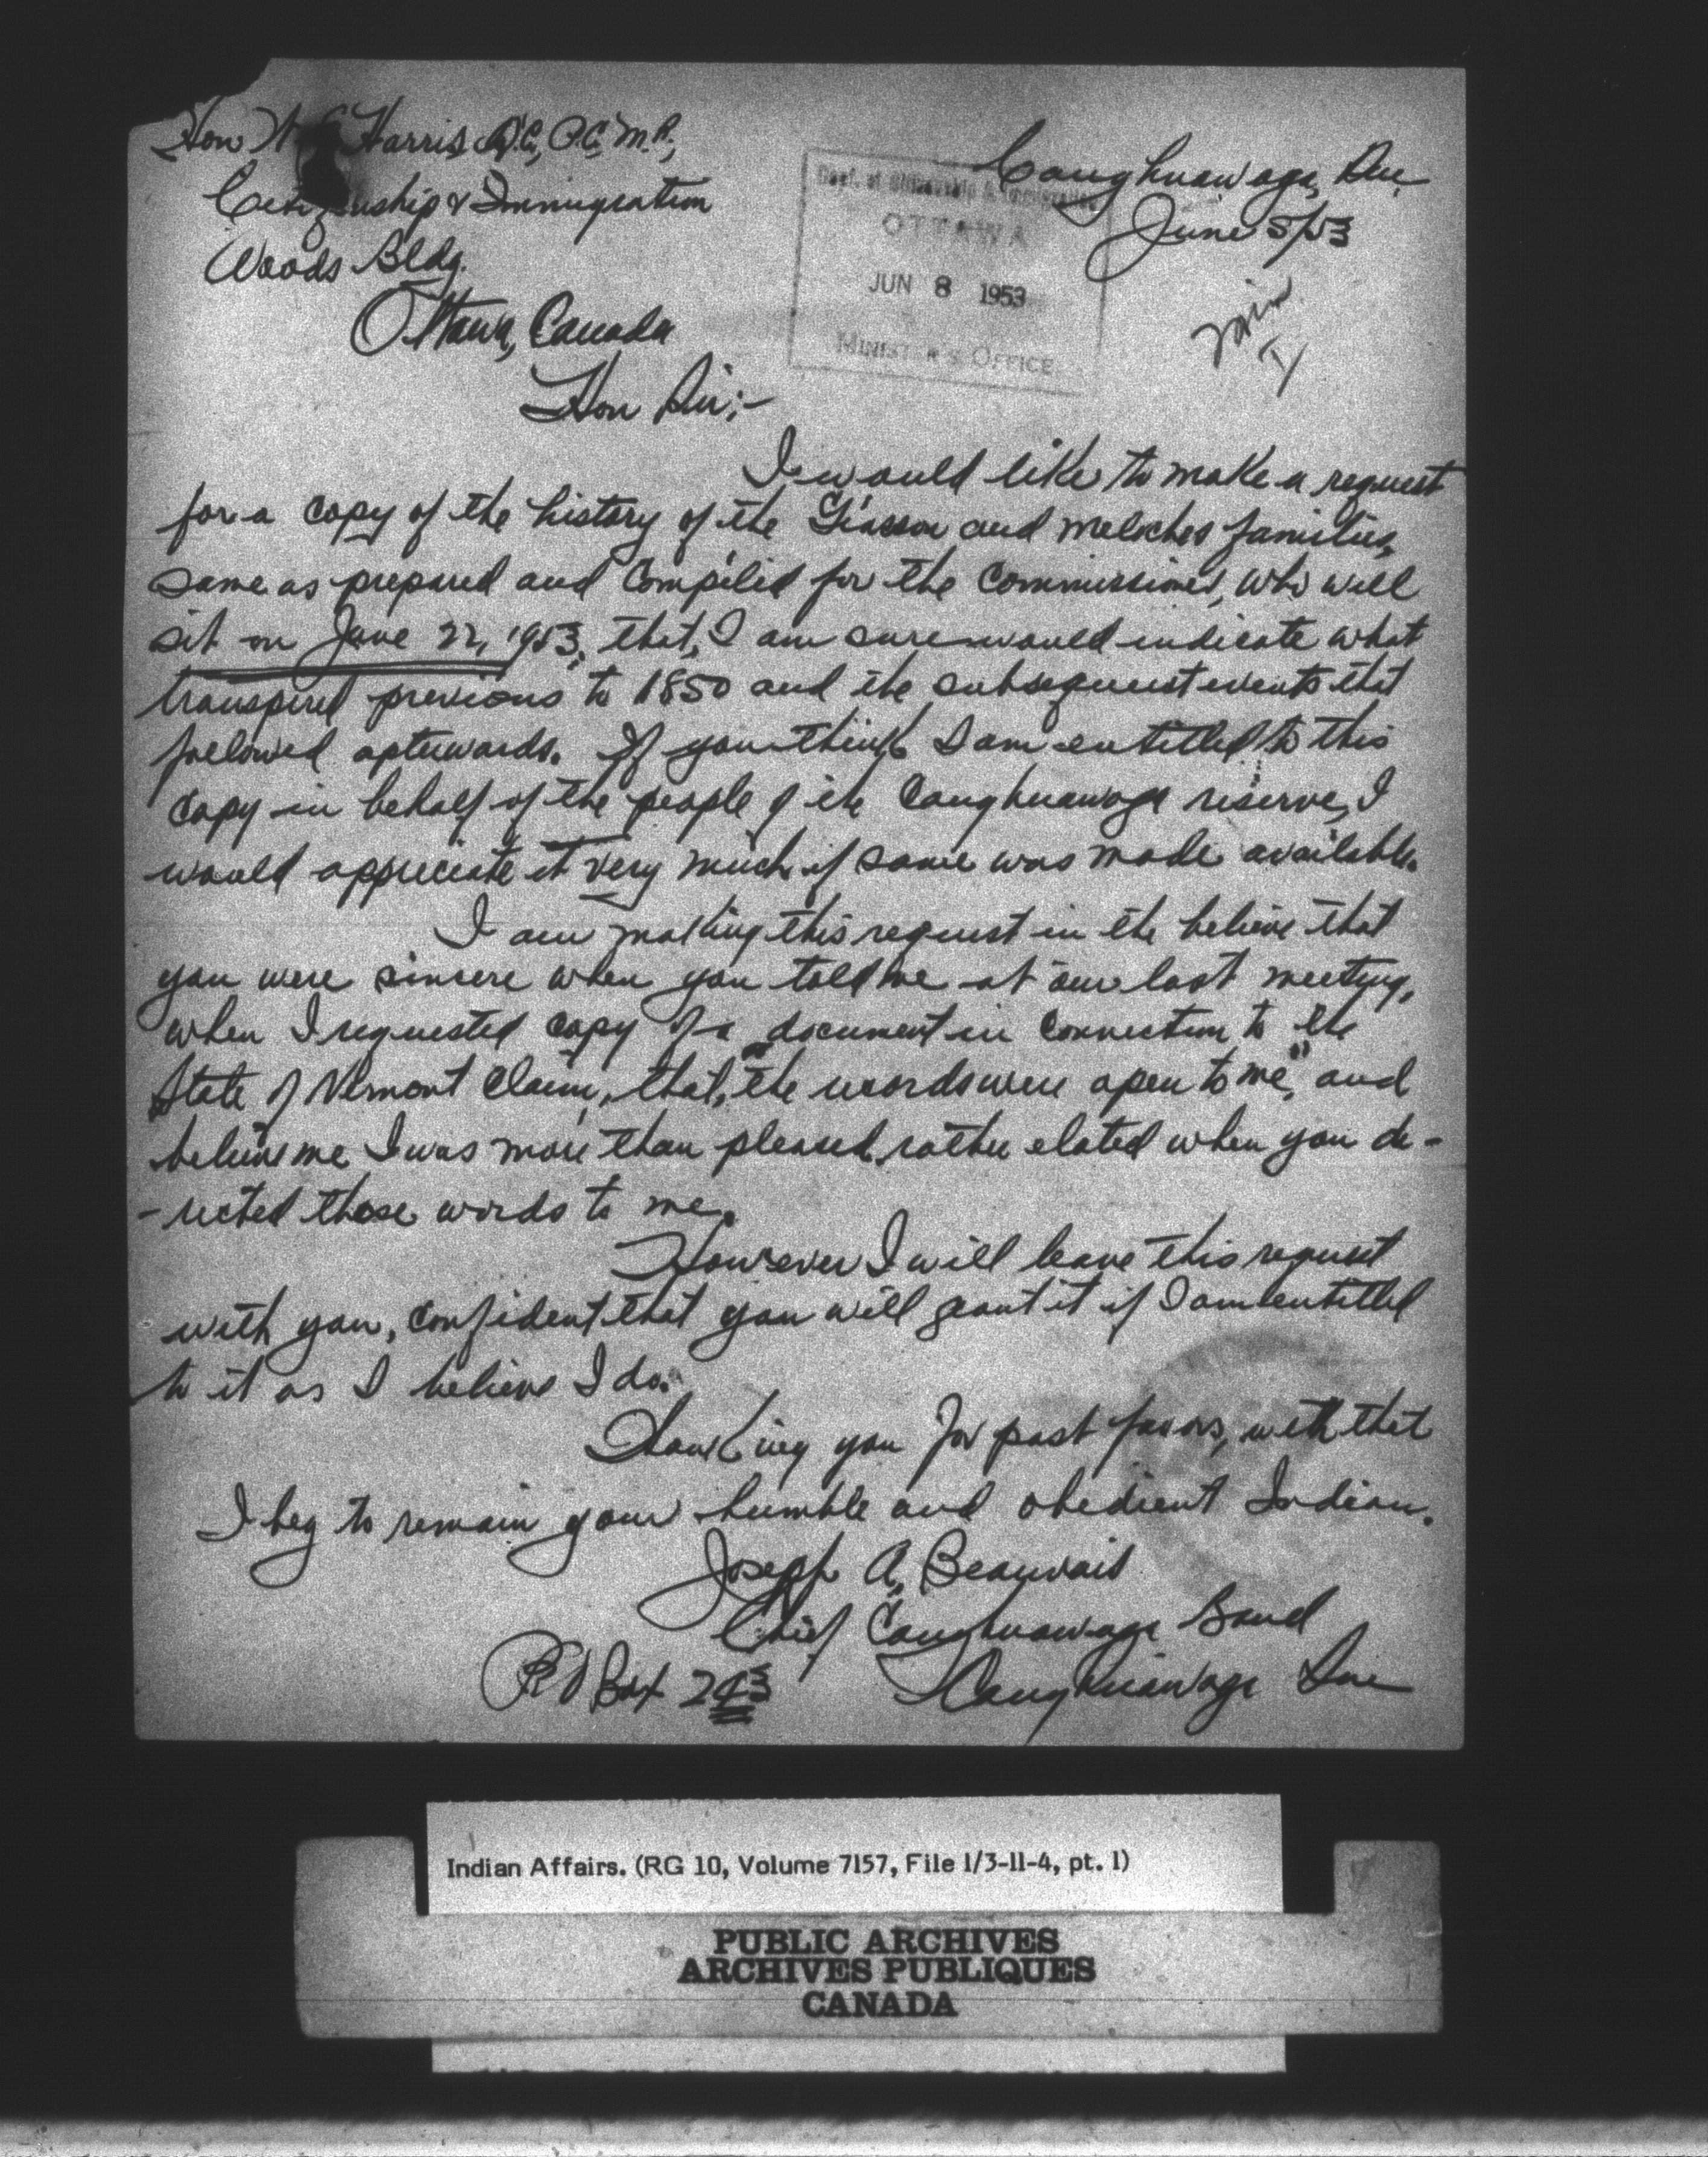 Hon W Harris Q.C., P.C., M.P.,
Citizenship & Immigration
Woods Bldg.
Ottawa, Canada
Caughnawaga, Que
June 5/53
Dept. of Citizenship & Immigration
OTTAWA
JUN 8 1953
MINISTER'S OFFICE
Hon Sir:-
I would like to make a request
for a copy of the history of the Giasson and Meloches families,
same as prepared and compiled for the Commissioner, who will
sit on June 22, 1953, that, I am sure would indicate what
transpired previous to 1850 and the subsequent events that
followed afterwards. If you think I am entitled to this
copy in behalf of the people of the Caughnawaga reserve, I
would appreciate it very much if same was made available.
I am making this request in the believe that
you were sincere when you told me at our last meeting,
when I requested copy of a document in connection to "the
State of Vermont Claim, that, "the were open to me," and
believe me I was more than pleased, rather elated when you di-
-rected those words to me.
However I will leave this request
with you, confident that you will grant it if I am entitled
to it as I believe I do.
Thanking you for past favors, with that
I beg to remain your humble and obedient Indian.
Joseph A. Beauvais
Chief Caughnawaga Band
PO Box 243 Caughnawaga Que
Indian Affairs. (RG 10, Volume 7157, File 1/3-11-4, pt. 1)
PUBLIC ARCHIVES
ARCHIVES PUBLIQUES
CANADA